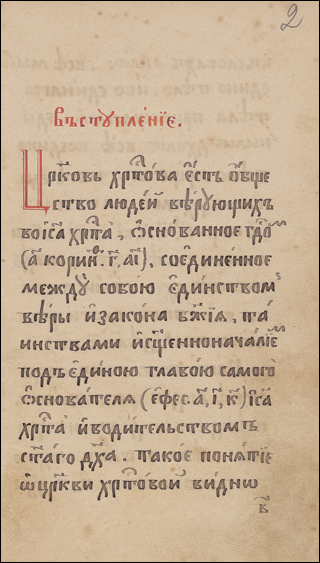 2
въступле́нїе.
Цр҃ковь хрⷭ҇то́ва є҆́сть ѻ҆́бще
ство людей вѣ́рующихъ
во і҆и҃са хрⷭ҇та̀, ѡ҆сно́ванное гдⷭ҇омъ
(а҃ кори́нѳ. г҃, а҃і), соединенное
междꙋ̀ собою е҆ди́нствомъ
вѣ́ры и҆ зако́на бж҃їѧ, та́
инствами и҆ сщ҃енноначалїемъ
подъ е҆ди́ною главою самого
ѡ҆снова́телѧ (е҆фес. а҃, і҃, к҃) і҆и҃са
хрⷭ҇та̀ и҆ води́тельствомъ
ст҃а́го дх҃а. такое поня́тїе
ѡ҆ цр҃кви хрⷭ҇то́вой ви́дно